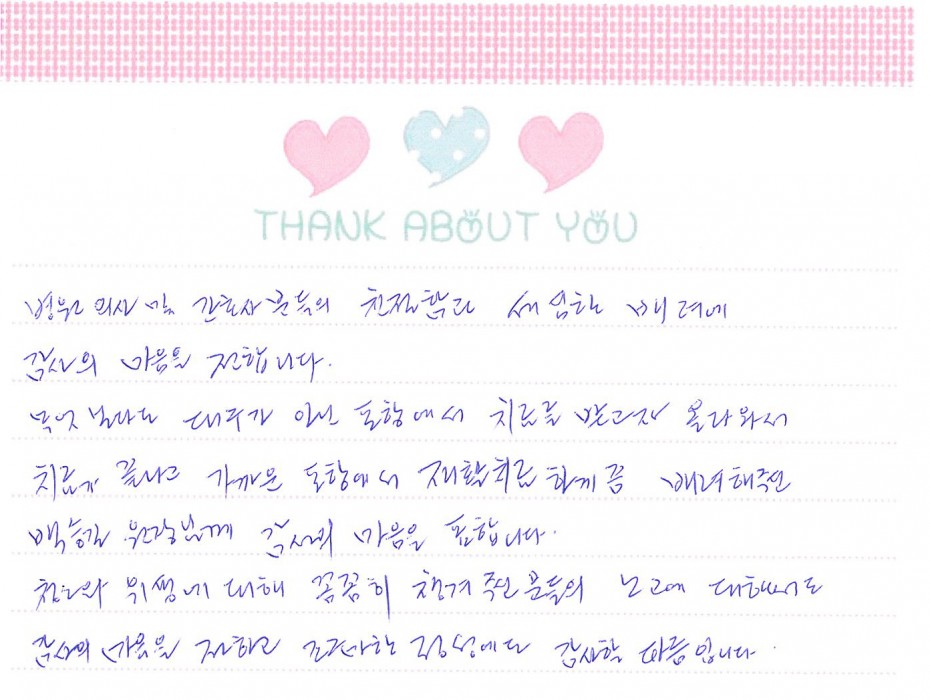 THANK ABOUT YOU
병원 의사 및 간호사분들의 친절함과 세심한 배려에
감사의 마음을 전합니다.
무엇보다도 대구가 아닌 포항에서 치료를 받고자 올라와서
치료가 끝나고 가까운 포항에서 재활치료 하게끔 배려해주신
백승길 원장님께 감사의 마음을 표합니다.
청소와 위생에 대해 꼼꼼히 챙겨주신 분들의 노고에 대해서도
감사의 마음을 전하고 정성에도 감사할 따름입니다.